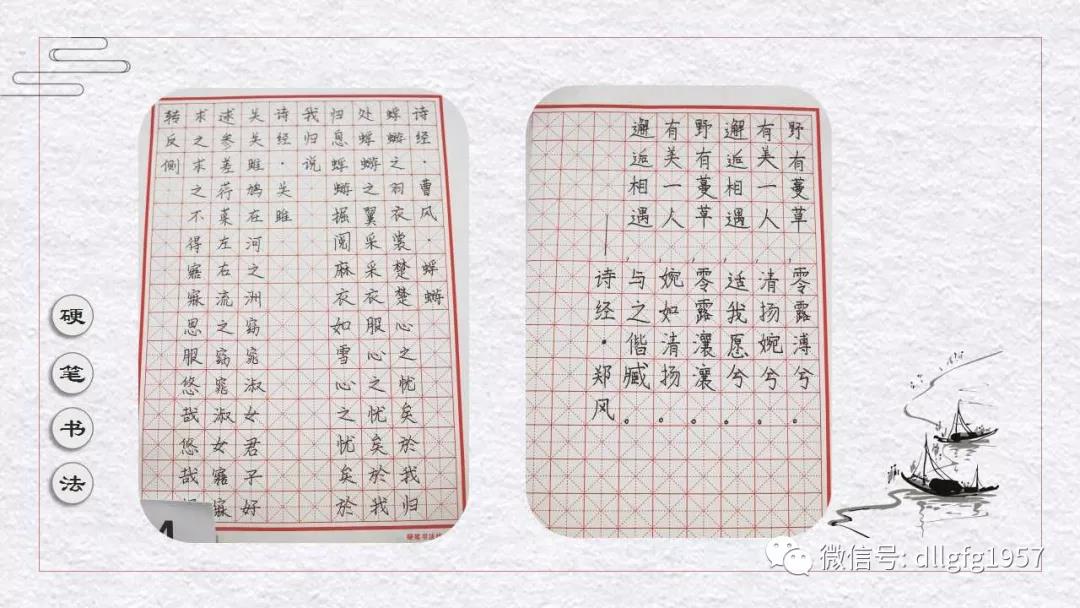 硬笔书法
诗经·曹风·蜉蝣
蜉蝣之羽衣裳楚楚心之忧矣於我归
处蜉蝣之翼采采衣服心之忧矣於我
归息蜉蝣掘阅麻衣如雪心之忧矣於
我归说
诗经·关雎
关关雎鸠在河之洲窈窕淑女君子好
逑参差荇菜左右流之窈窕淑女寤寐
求之求之不得寤寐思服悠哉悠哉
转反侧
野有蔓草,零露漙兮。
有美一人,清扬婉兮。
邂逅相遇,适我愿兮。
野有蔓草,零露瀼瀼。
有美一人,婉如清扬。
邂逅相遇,与之偕臧。
——诗经·郑风
微信号: dllgfg1957